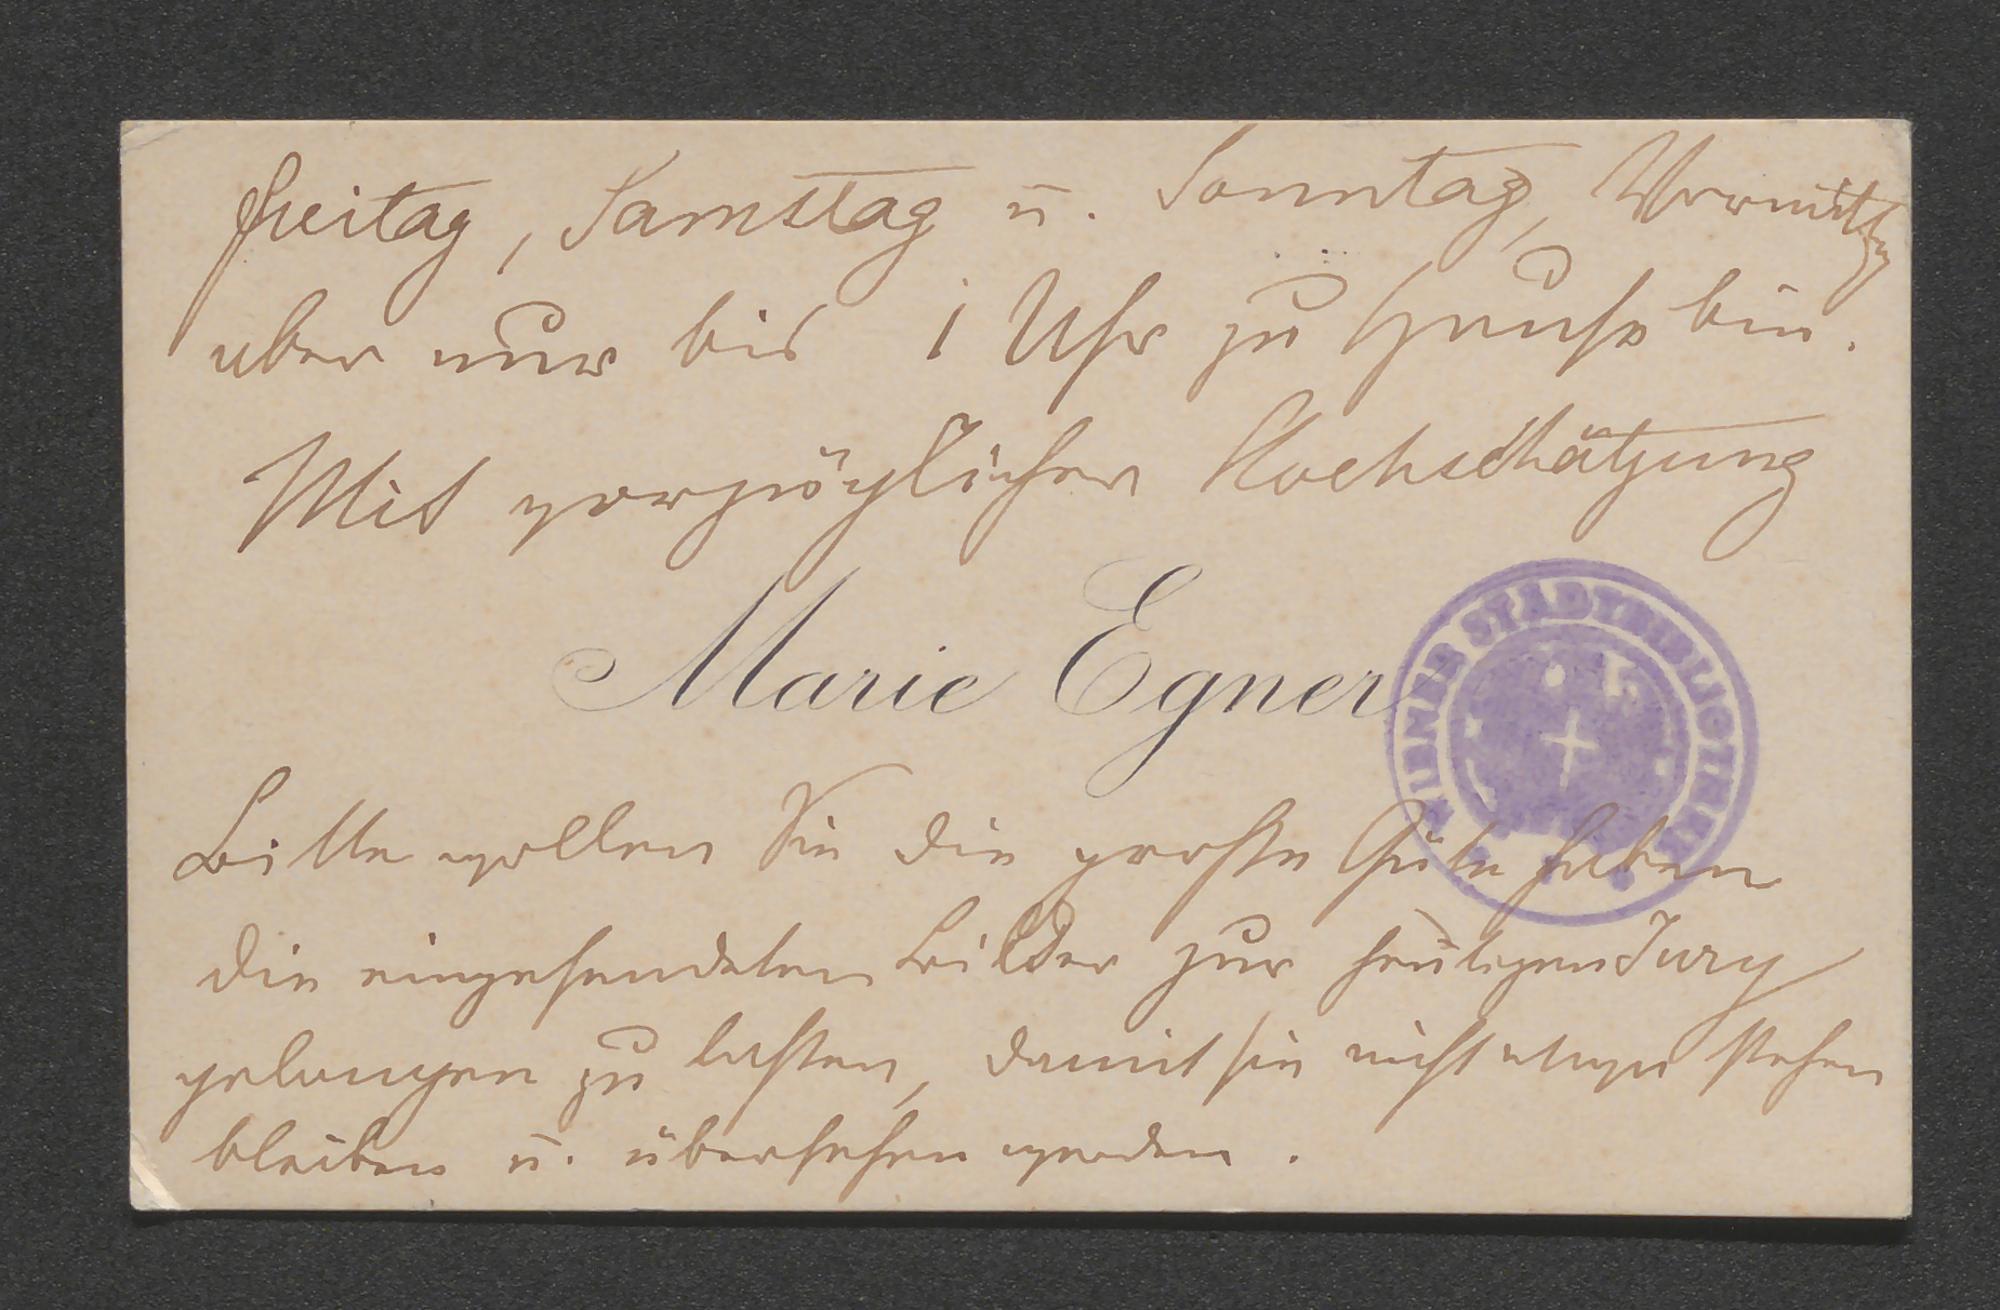 Freitag, Samstag u. Sonntag, Vormittag
aber nur bis 1 Uhr zu Hause bin.
Mit vorzüglicher Hochschätzung
Marie Egner
WIENER STADTBIBLIOTHEK
Bitte wollen Sie die große Güte haben
die eingesendeten Bilder zur heutigen Jury
gelangen zu lassen, damit sie nicht etwa stehen
bleiben u. übersehen werden.